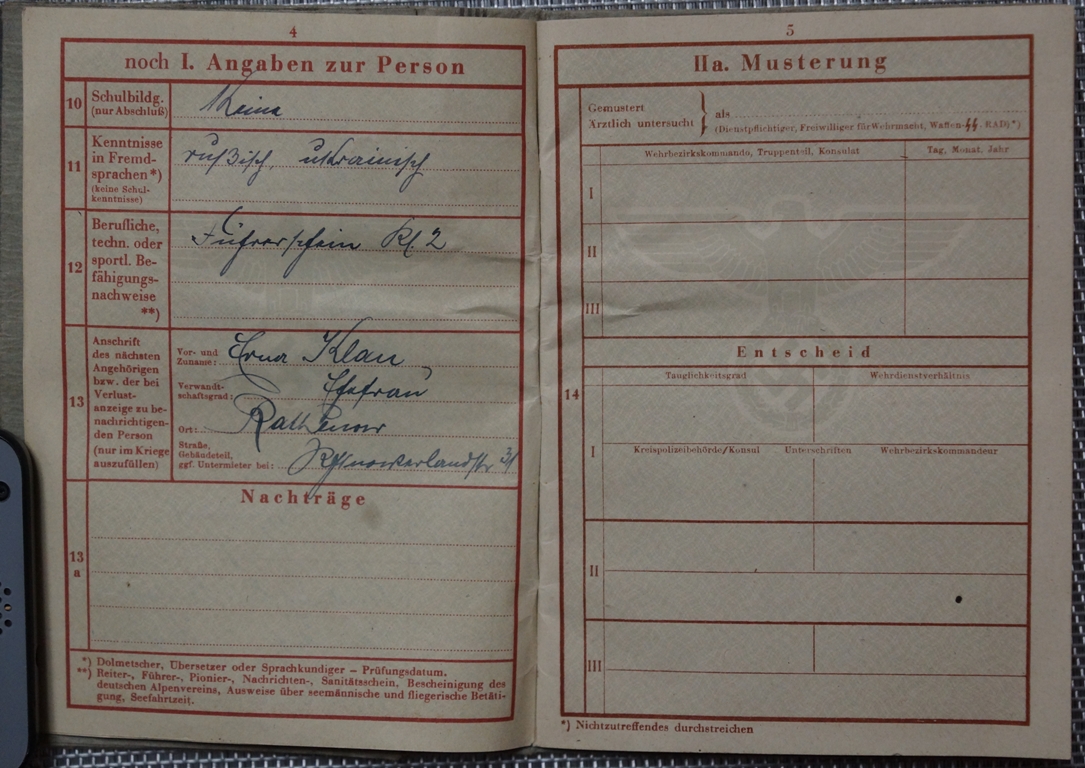 4
noch I. Angaben zur Person
10
Schulbildg.
(nur Abschluß)
Keine
11
Kenntnisse
in Fremd-
sprachen*)
(keine Schul-
kenntnisse)
rußisch, ukrainisch
12
Berufliche,
techn. oder
sportl. Be-
fähigungs-
nachweise
**)
Führerschein Kl 2
13
Anschrift
des nächsten
Angehörigen
bzw. der bei
Verlust-
anzeige zu be-
nachrichtigen-
den Person
(nur im Kriege
auszufüllen)
Vor- und
Zuname:
Erna Klau
Verwandt-
schaftsgrad:
Ehefrau
Ort:
Rathenow
Straße,
Gebäudeteil,
ggf. Untermieter bei:
31
Nachträge
13
a
*) Dolmetscher, Übersetzer oder Sprachkundiger – Prüfungsdatum.
**) Reiter-, Führer-, Pionier-, Nachrichten-, Sanitätsschein, Bescheinigung des
deutschen Alpenvereins, Ausweise über seemännische und fliegerische Betäti-
gung, Seefahrtzeit.
5
IIa. Musterung
Gemustert
Ärztlich untersucht
als
(Dienstpflichtiger, Freiwilliger für Wehrmacht, Waffen-SS, RAD)*)
Wehrbezirkskommando, Truppenteil, Konsulat
Tag, Monat, Jahr
I
II
III
Entscheid
14
Tauglichkeitsgrad
Wehrdienstverhältnis
I
Kreispolizeibehörde/Konsul
Unterschriften
Wehrbezirkskommandeur
II
III
*) Nichtzutreffendes durchstreichen